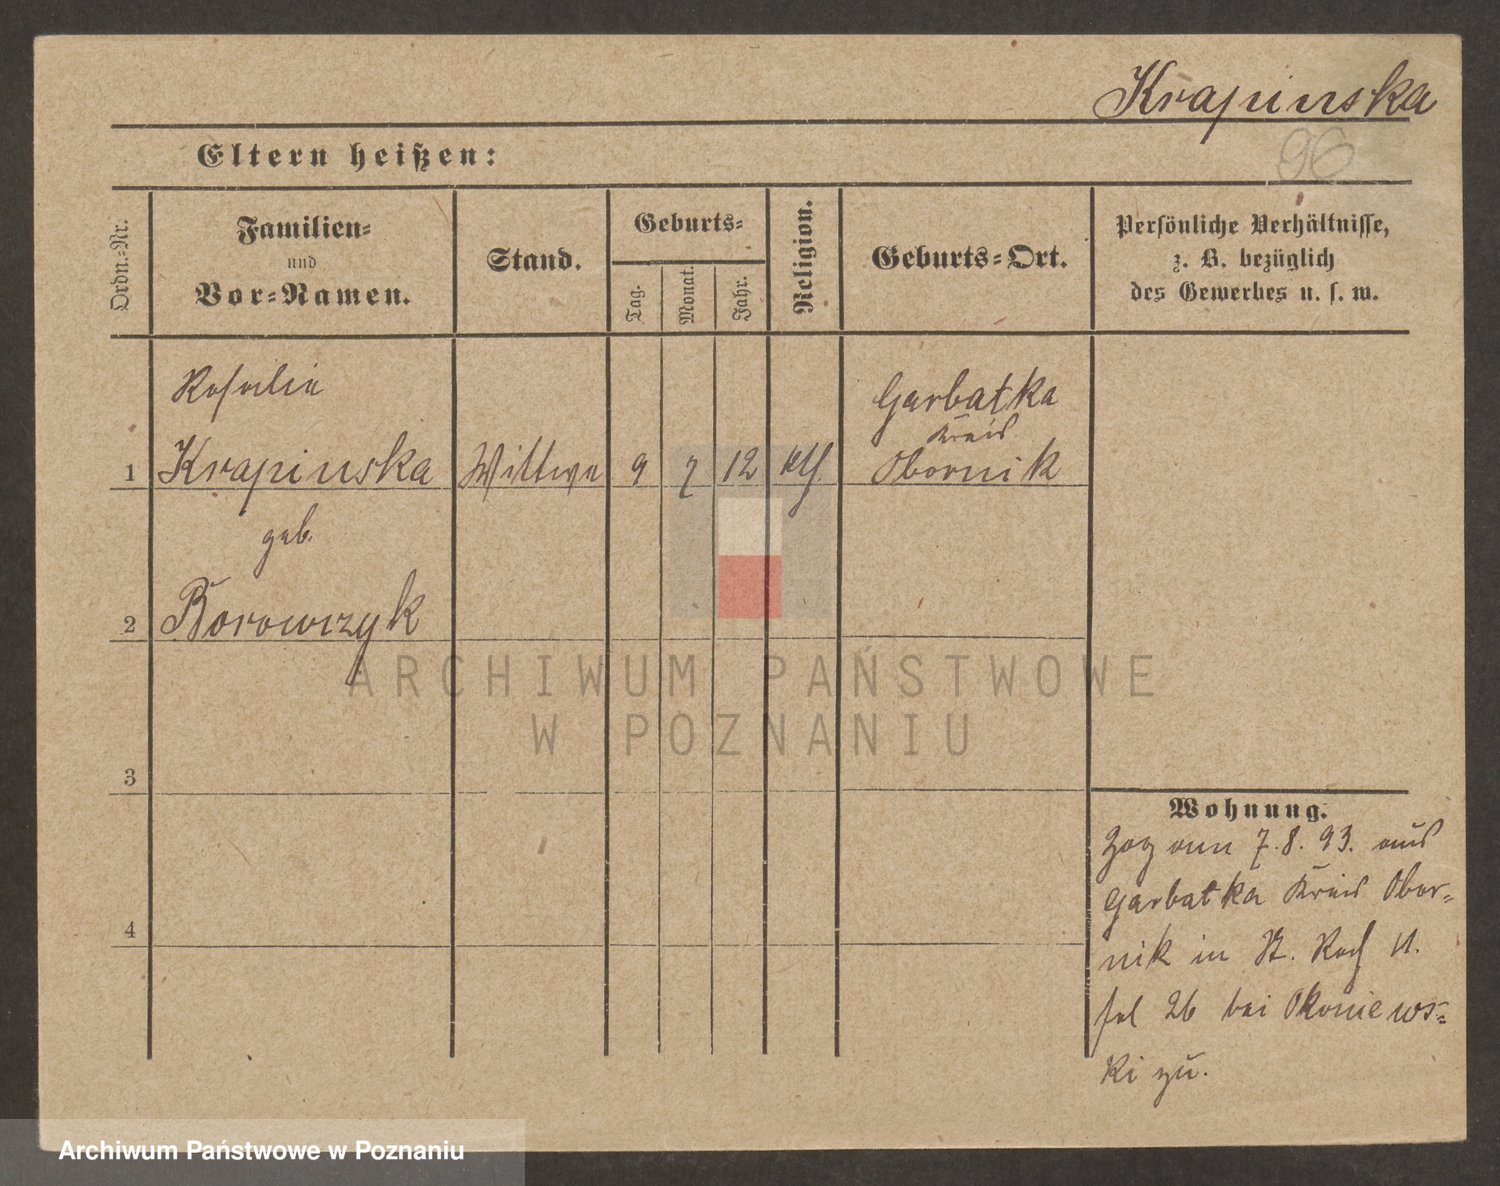 Krapinska
96
Eltern heißen:
Ordn.-Nr.
Familien-
und
Vor-Namen.
Stand.
Geburts-
Tag.
Monat.
Jahr.
Religion.
Geburts-Ort.
Persönliche Verhältnisse,
z. B. bezüglich
des Gewerbes u. s. w.
Rosalie
1 Krapinska Wittwe 9 7 12 kth
Garbatka
Kreis
Obornik
geb.
2 Borowczyk
3
4
ARCHIWUM PAŃSTWOWE
W POZNANIU
Wohnung.
Zog am 7.8.93. aus
Garbatka Kreis Obor-
nik in St. Roch
26 bei Okoniews-
ki zu.
Archiwum Państwowe w Poznaniu